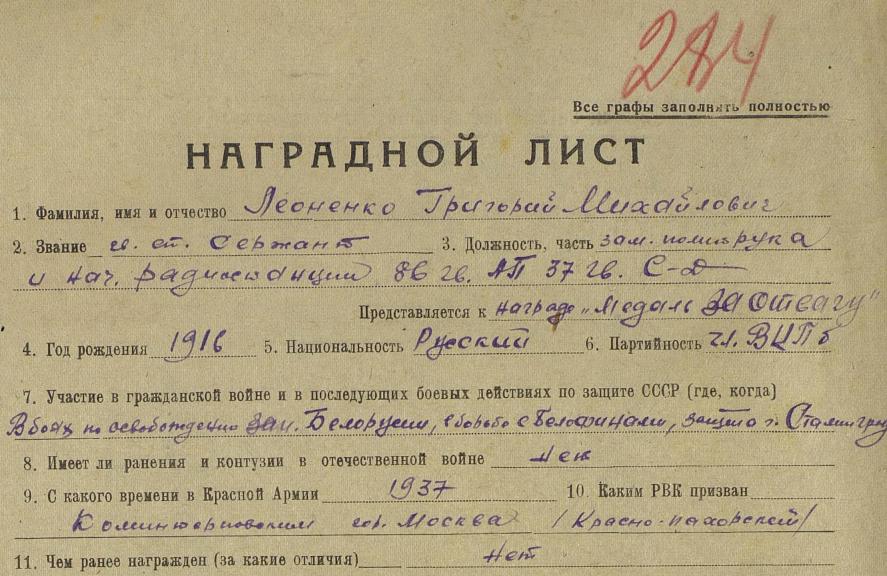 284
Все графы заполнять полностью
НАГРАДНОЙ ЛИСТ
1. Фамилия, имя и отчество Леоненко Григорий Михайлович
2. Звание гв. ст. Сержант 3. Должность, часть зам. политрука
и нач. радиостанции 86 гв. АП 37 гв. С-Д
Представляется к награде „Медаль За Отвагу"
4. Год рождения 1916 5. Национальность Русский 6. Партийность чл. ВКПб
7. Участие в гражданской войне и в последующих боевых действиях по защите СССР (где, когда)
В боях по освобождению Зап. Белорусии, в борьбе с Белофинами, защита г. Сталинград
8. Имеет ли ранения и контузии в отечественной войне Нет
9. С какого времени в Красной Армии 1937 10. Каким РВК призван
Коминтерновским гор. Москва /Красно-пахорской/
11. Чем ранее награжден (за какие отличия) Нет